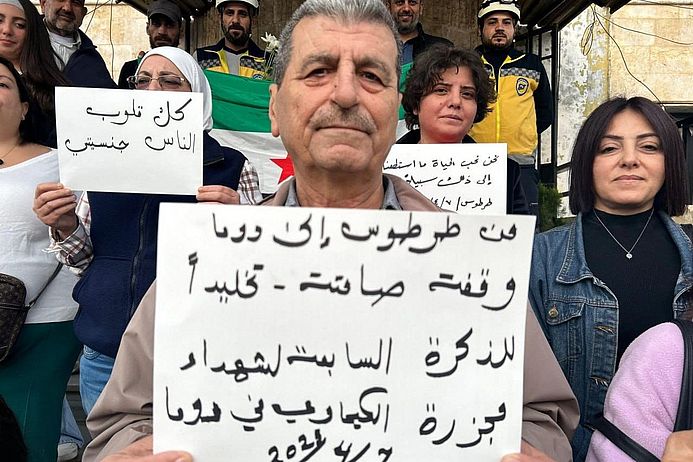 كل قلوب
الناس جنسيتي
نحن نحب الحياة ما استطعنا
إلى ذلك سبيلا
طرطوس
من طرطوس إلى دوما
وقفة صامتة - تخليداً
للذكرة السابعة لشهداء
مجزرة الكيماوي في دوما